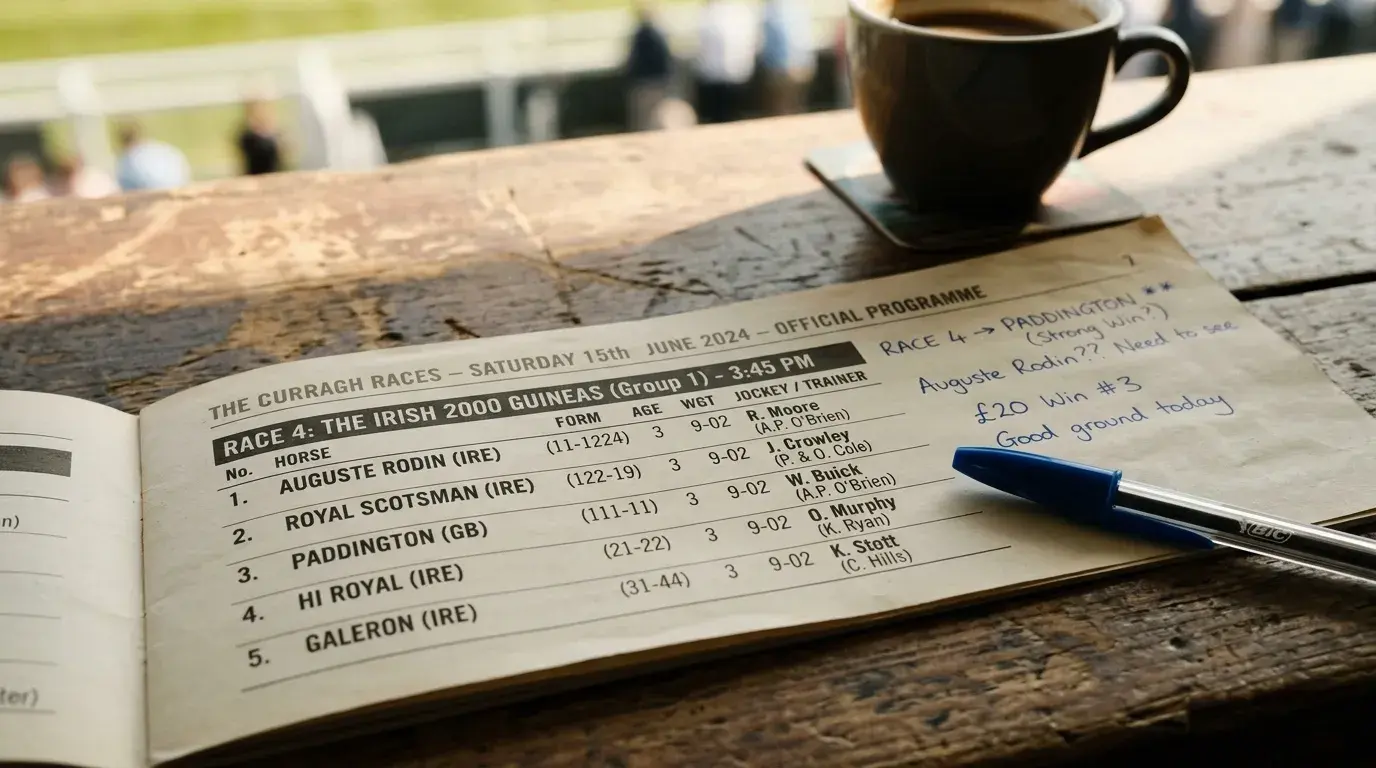 THE CURRAGH RACES – SATURDAY 15th JUNE 2024 – OFFICIAL PROGRAMME
RACE 4: THE IRISH 2000 GUINEAS (Group 1) - 3:45 PM
No. HORSE FORM AGE WGT JOCKEY / TRAINER
1. AUGUSTE RODIN (IRE) (11-1224) 3 9-02 R. Moore
(A.P. O'Brien)
2. ROYAL SCOTSMAN (IRE) (122-19) 3 9-02 J. Crowley
(P. & O. Cole)
3. PADDINGTON (GB) (111-11) 3 9-02 W. Buick
(A.P. O'Brien)
4. HI ROYAL (IRE) (21-22) 3 9-02 O. Murphy
(K. Ryan)
5. GALERON (IRE) (31-44) 3 9-02 K. Stott
(C. Hills)
RACE 4 → PADDINGTON **
(Strong Win?)
Auguste Rodin?? Need to see
£20 Win #3
Good ground today
BIC
n)
ter)